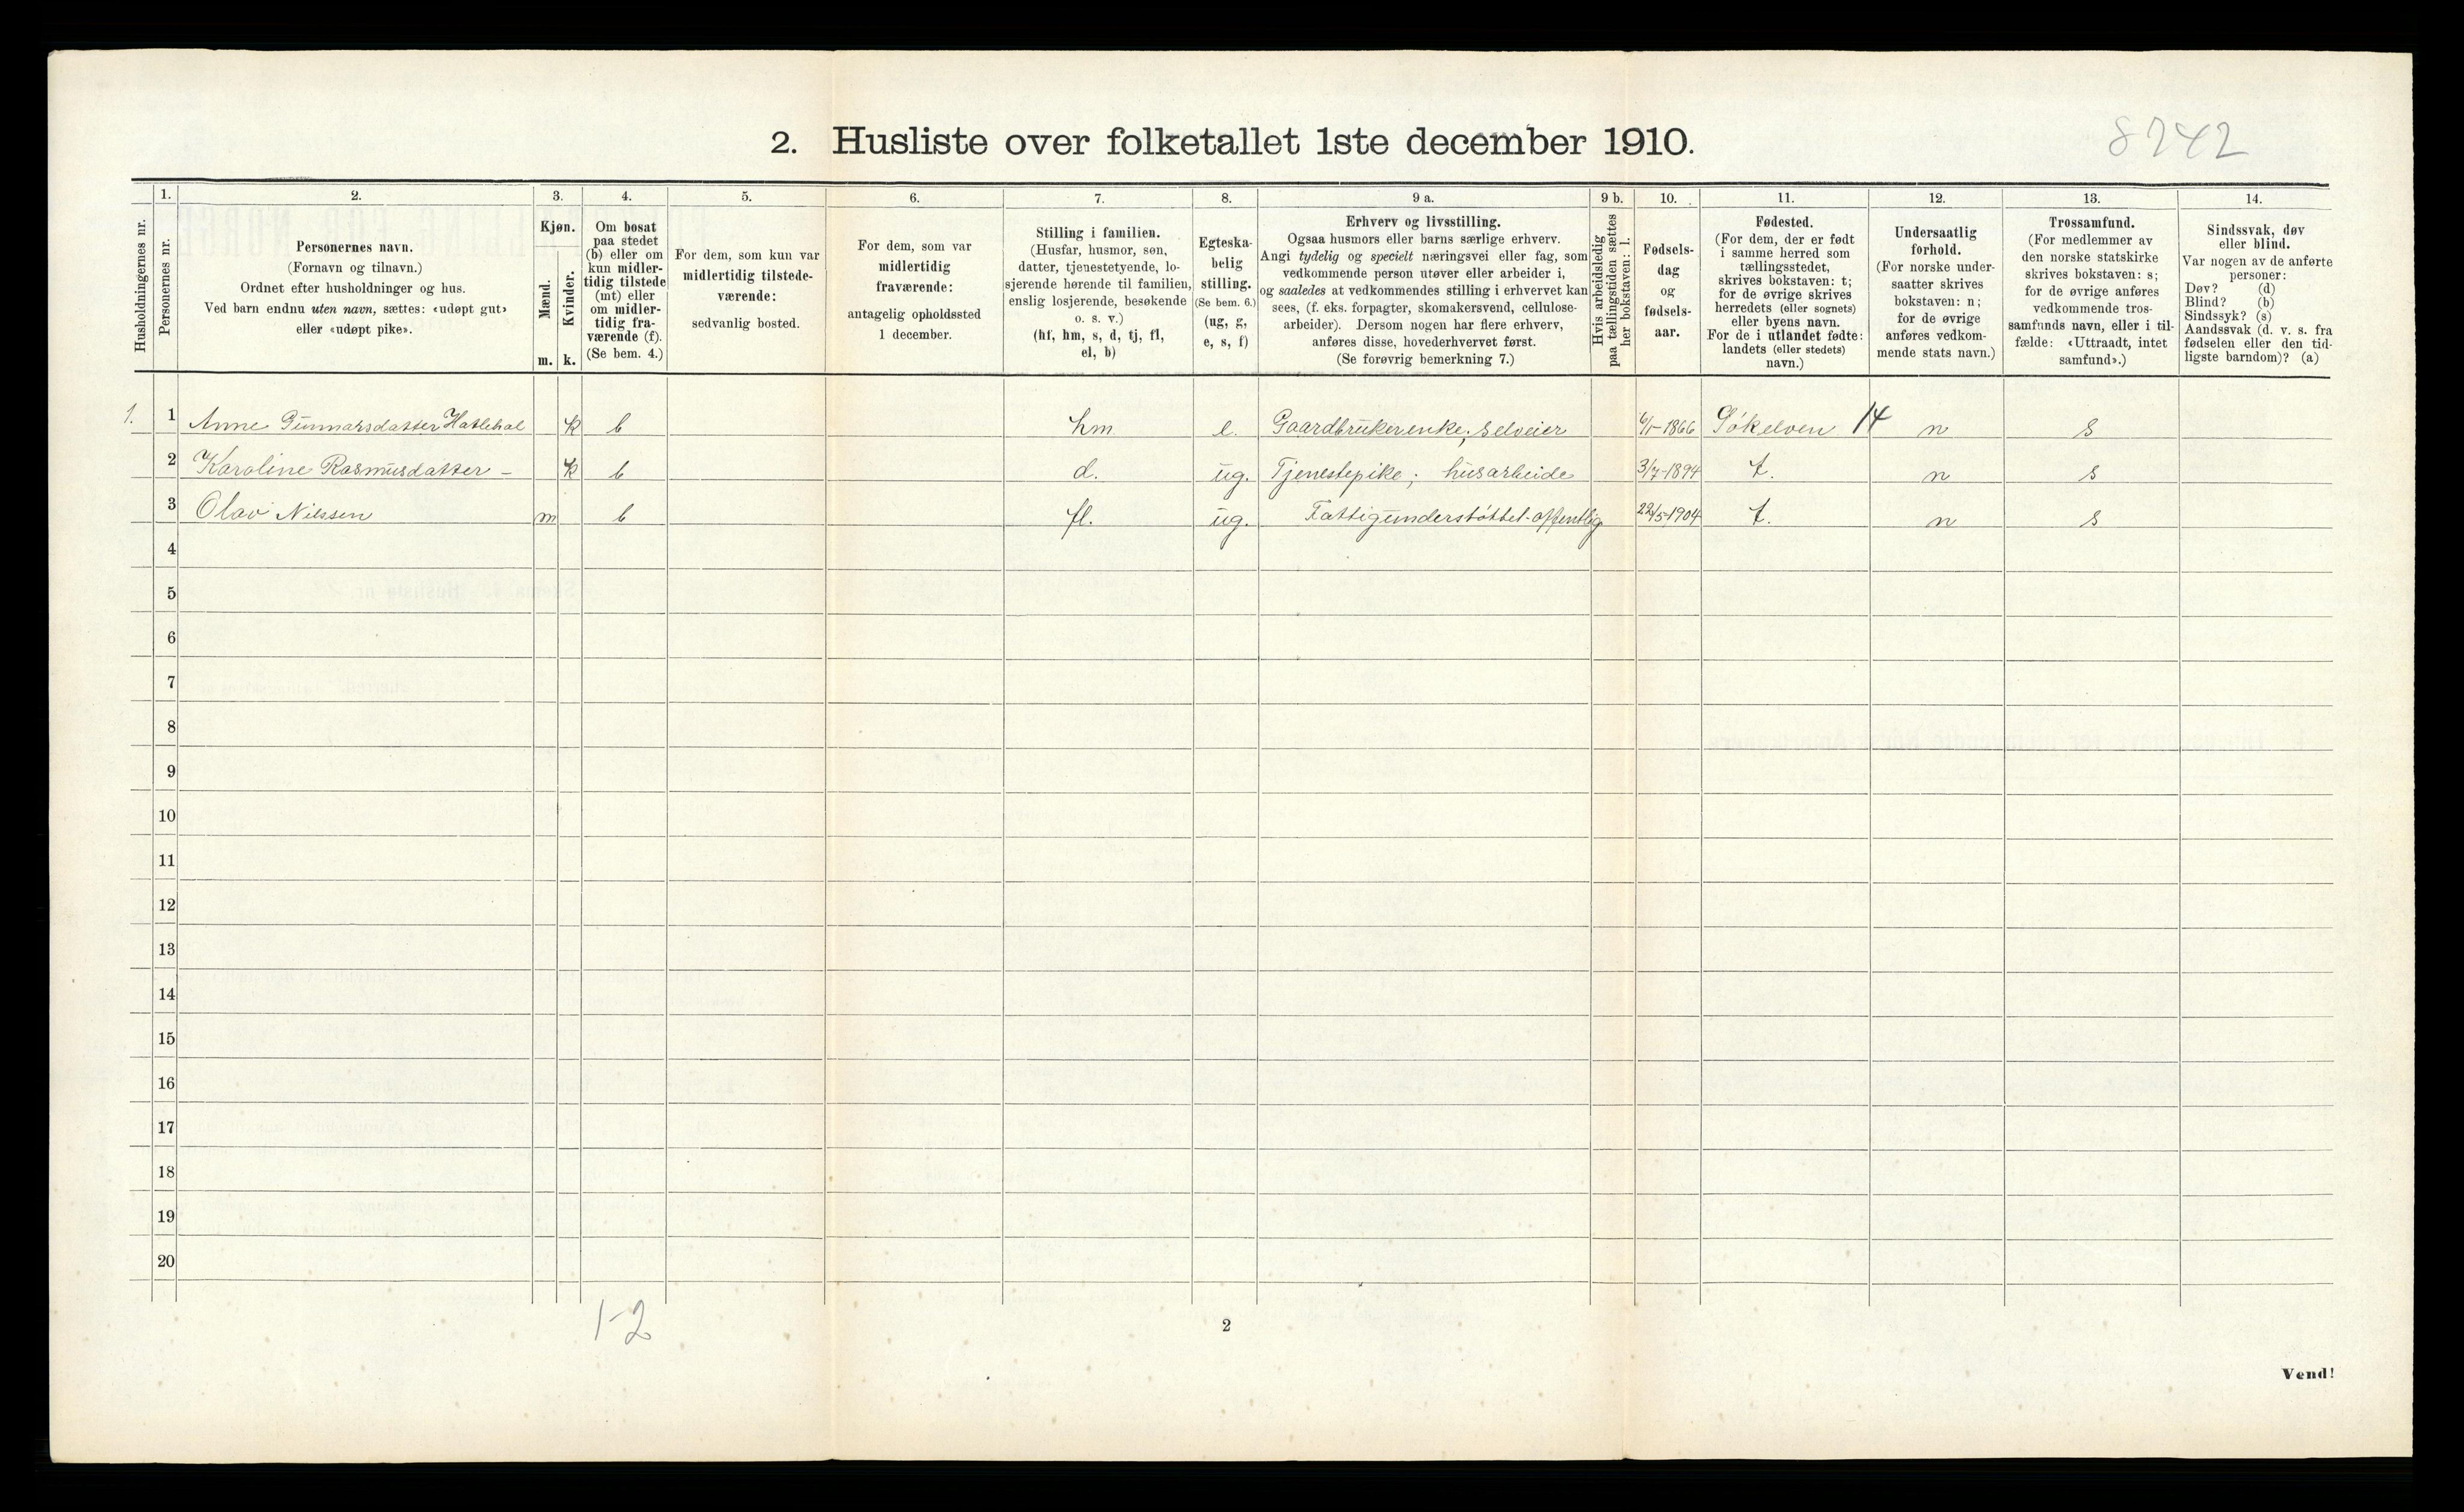 2. Husliste over folketallet 1ste december 1910.
8242
Husholdningernes nr.
1.
Personernes nr.
2.
Personernes navn.
(Fornavn og tilnavn.)
Ordnet efter husholdninger og hus.
Ved barn endnu uten navn, sættes: «udøpt gut»
eller «udøpt pike».
3.
Kjøn.
Mænd.
Kvinder.
m. k.
4.
Om bosat
paa stedet
(b) eller om
kun midler-
tidig tilstede
(mt) eller
om midler-
tidig fra-
værende (f).
(Se bem. 4.)
5.
For dem, som kun var
midlertidig tilstede-
værende:
sedvanlig bosted.
6.
For dem, som var
midlertidig
fraværende:
antagelig opholdssted
1 december.
7.
Stilling i familien.
(Husfar, husmor, søn,
datter, tjenestetyende, lo-
sjerende hørende til familien,
enslig losjerende, besøkende
o. s. v.)
(hf, hm, s, d, tj, fl,
el, b)
8.
Egteska-
belig
stilling.
(Se bem. 6.)
(ug, g,
e, s, f)
9 a.
Erhverv og livsstilling.
Ogsaa husmors eller barns særlige erhverv.
Angi tydelig og specielt næringsvei eller fag, som
vedkommende person utøver eller arbeider i,
og saaledes at vedkommendes stilling i erhvervet kan
sees, (f. eks. forpagter, skomakersvend, cellulose-
arbeider). Dersom nogen har flere erhverv,
anføres disse, hovederhvervet først.
(Se forøvrig bemerkning 7.)
9 b.
Hvis arbeidsledig
paa tællingstiden sættes
her bokstaven: l.
10.
Fødsels-
dag
og
fødsels-
aar.
11.
Fødested.
(For dem, der er født
i samme herred som
tællingsstedet,
skrives bokstaven: t;
for de øvrige skrives
herredets (eller sognets)
eller byens navn.
For de i utlandet fødte:
landets (eller stedets)
navn.)
12.
Undersaatlig
forhold.
(For norske under-
saatter skrives
bokstaven: n;
for de øvrige
anføres vedkom-
mende stats navn.)
13.
Trossamfund.
(For medlemmer av
den norske statskirke
skrives bokstaven: s;
for de øvrige anføres
vedkommende tros-
samfunds navn, eller i til-
fælde: «Uttraadt, intet
samfund».)
14.
Sindssvak, døv
eller blind.
Var nogen av de anførte
personer:
Døv? (d)
Blind? (b)
Sindssyk? (s)
Aandssvak (d. v. s. fra
fødselen eller den tid-
ligste barndom)? (a)
1. 1 Anne Gunnarsdatter Hatlehol k b hm e. Gaardbrukerenke; selveier 6/1-1866 Søkelven 14 n s
2 Karoline Rasmusdatter – k b d. ug. Tjenestepike; husarbeide 3/7-1894 t. n s
3 Olav Nilssen m b fl. ug. Fattigunderstøttet-offentlig 22/5-1904 t. n s
4
5
6
7
8
9
10
11
12
13
14
15
16
17
18
19
20
1-2
2
Vend!